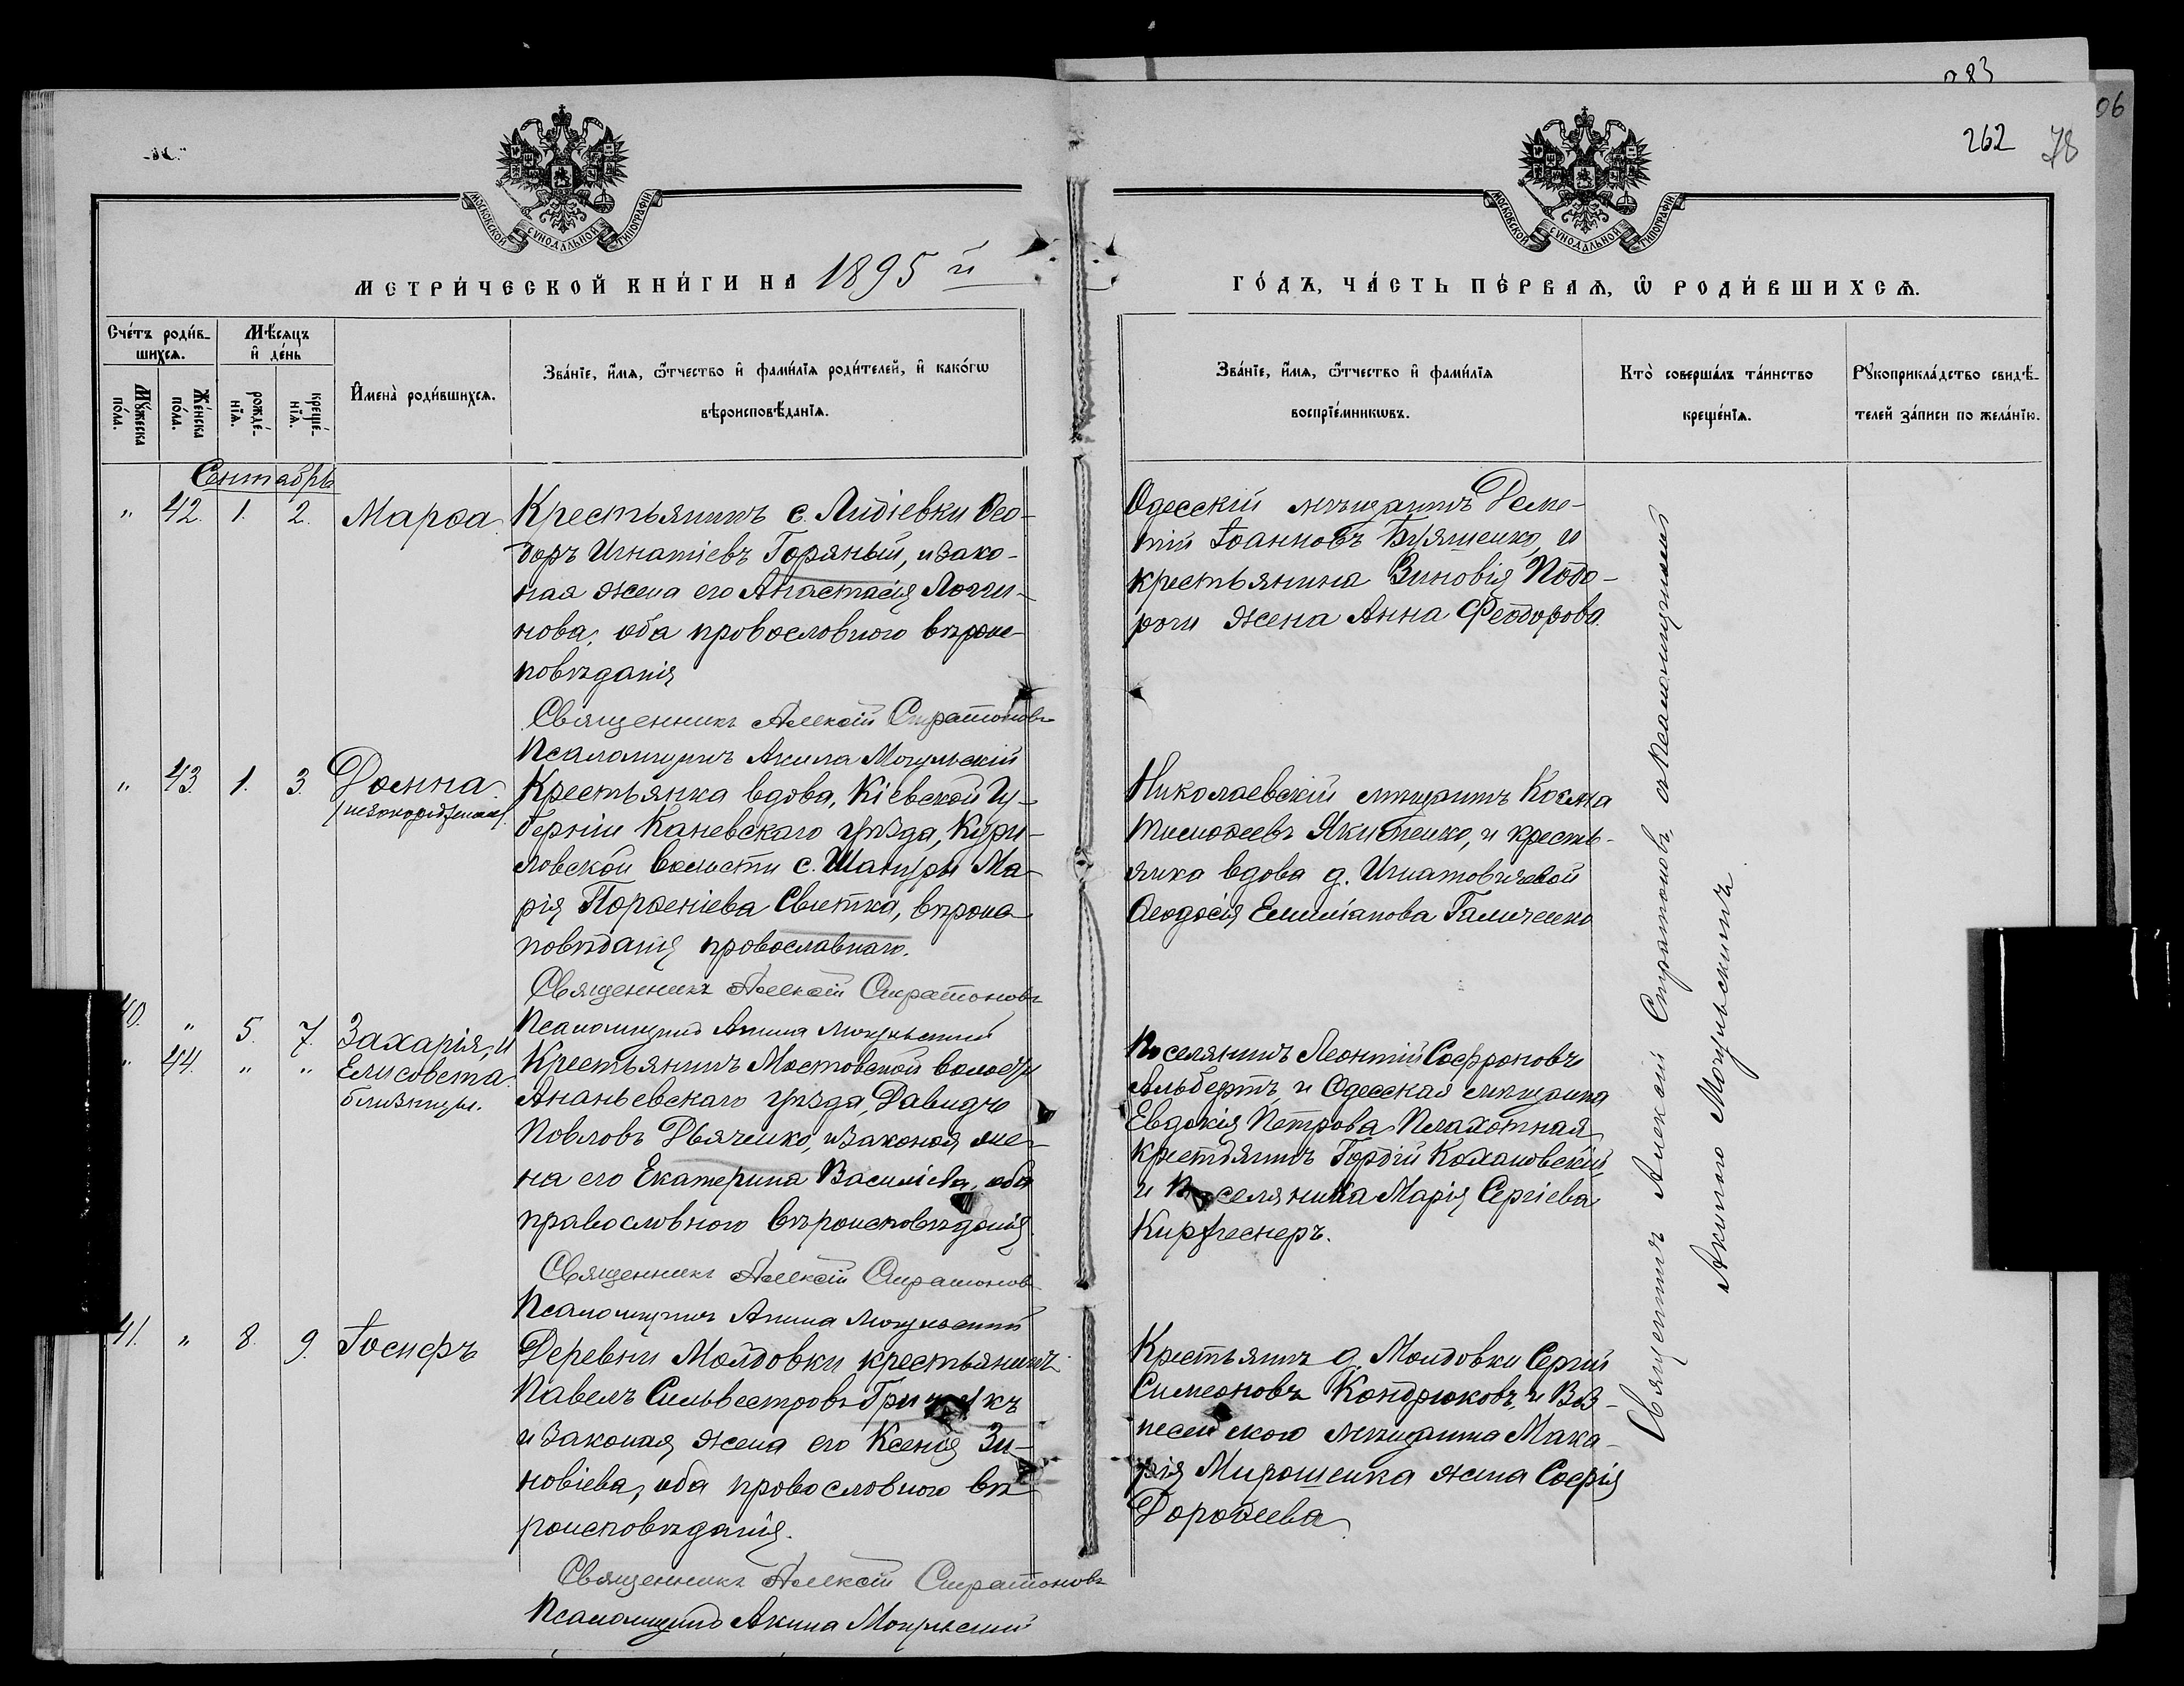 283
06
262 78
МОСКОВСКОЙ СѴНОДАЛЬНОЙ ТИПОГРАФІИ
МОСКОВСКОЙ СѴНОДАЛЬНОЙ ТИПОГРАФІИ
МЕТРИ́ЧЕСКОЙ КНИ́ГИ НА 1895 й
ГО́ДЪ, ЧА́СТЬ ПЕ́РВАѦ, Ѡ РОДИ́ВШИХСѦ.
Сче́тъ роди́в-
шихсѧ.
Мѣ́сѧцъ
и҆ де́нь
Мꙋ́жеска по́ла.
Же́нска по́ла.
рожде́-
нїѧ.
креще́-
нїѧ.
И҆мена̀ роди́вшихсѧ.
Зва́нїе, и҆́мѧ, ѻ҆́тчество и҆ фами́лїѧ роди́телей, и҆ како́гѡ
вѣроисповѣ́данїѧ.
Зва́нїе, и҆́мѧ, ѻ҆́тчество и҆ фами́лїѧ
воспрїе́мникѡвъ.
Кто̀ соверша́лъ та́инство
креще́нїѧ.
Рꙋкоприкла́дство свидѣ́-
телей за́писи по жела́нїю.
Сентябрь
" 42. 1. 2. Марѳа
Крестьянинъ с. Лидіевки Ѳео-
доръ Игнатіевъ Горяный, и зако-
ная жена его Анастасія Логги-
нова, оба провословного вѣроис-
повѣданія
Священникъ Алексій Стратоновъ
Псаломщикъ Акила Могульскій
Одесскій мѣщанинъ Деме-
тій Іоанновъ Буряченко, и
крестьянина Зиновія Подо-
роги жена Анна Феодорова.
" 43. 1. 3. Домна
(незоконорожденная)
Крестьянка вдова, Кіевской Гу-
берніи Каневскаго уѣзда, Кури-
ловской волости с. Шандры Ма-
рія Порфеніева Свитка, вѣроис-
повѣданія провославнаго.
Священникъ Алексій Стратоновъ
Псаломщикъ Акила Могульскій
Николаевскій мѣщанинъ Косма
Тимоѳеевъ Якименко, и кресть-
янка вдова д. Игнатовичевой
Ѳеодосія Емиліанова Галиченко
40. " 5. 7. Захарія, и
" 44. " " Елисовета
близнецы.
Крестьянинъ Мостовской волости
Ананьевскаго уѣзда, Давидъ
Повловъ Дьяченко, и законая же-
на его Екатерина Василіева, оба
православного вѣроисповѣданія.
Священникъ Алексій Стратоновъ
Псаломщикъ Акила Могульскій
Поселянинъ Леонтій Софроновъ
Альбертъ, и Одесская мѣщанка
Евдокія Петрова
крестьянинъ Гордій Кохановскій,
и Поселянинка Марія Сергіева
Киржеснеръ.
41. " 8. 9. Іосифъ
Деревни Молдовки крестьянинъ
Павелъ Сильвестровъ
и законая жена его Ксенія Зи-
новіева, оба провословного вѣ-
роисповѣданія.
Священникъ Алексій Стратоновъ
Псаломщикъ Акила Могульскій
Крестьянинъ д. Молдовки Сергій
Симеоновъ Кондрюковъ, и Воз-
несенского мѣщанина Мака-
рія Мирошенка жена Софія
Дороѳеева.
Священникъ Алексій Стратоновъ, съ Псаломщикомъ
Акилою Могульскимъ.